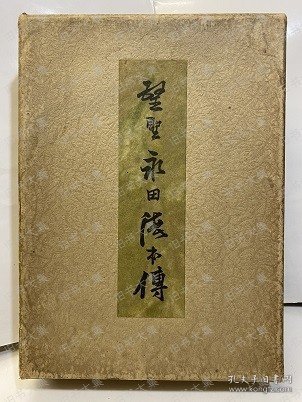 醫聖 永田德本傳
孔夫子旧书网